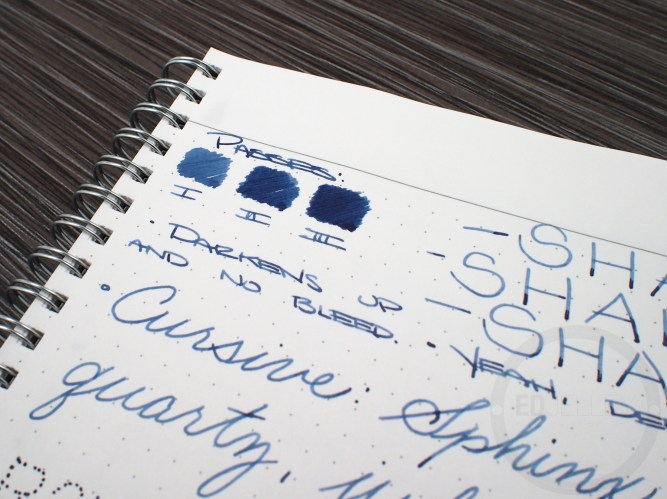 PASSES:
I II III
· DARKENS UP
AND NO BLEED.
- SHA
- SHA
- SHA
· YEAH, DE
· Cursive: Sphinx
quartz,